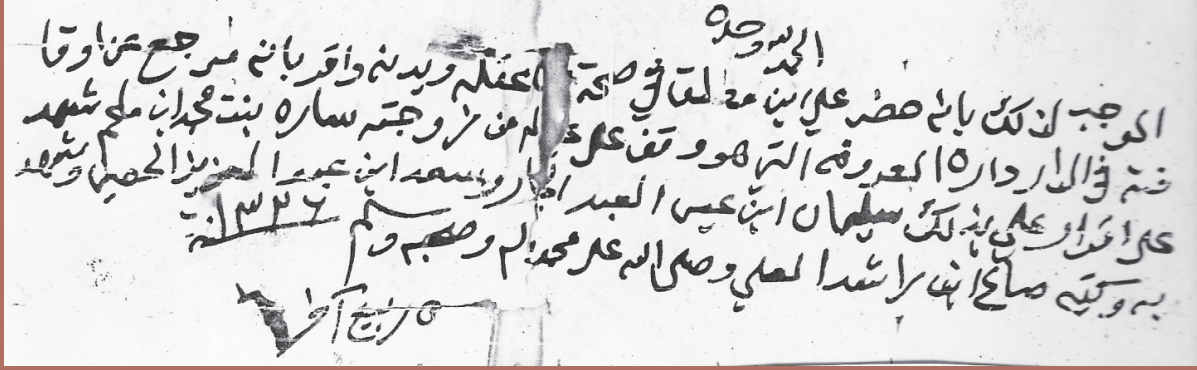 الحمد لله وحده
الموجب لذلك بانه حضر علي ابن في صحة عقله وبدنه واقر بانه مرجع عن اوقا
فته في الدار داره المعروفه التي هو وقف على من زوجته ساره بنت محمد ابن شهد
على اقرار علي بذلك سليمان ابن عيسى العبد وسعد ابن عبد العزيز الحصين وشهد
به وكتبه صالح ابن راشد المعلي وصلى الله على محمد واله وصحبه وسلم ١٣٣٦ سنة
٥ ربيع آخر